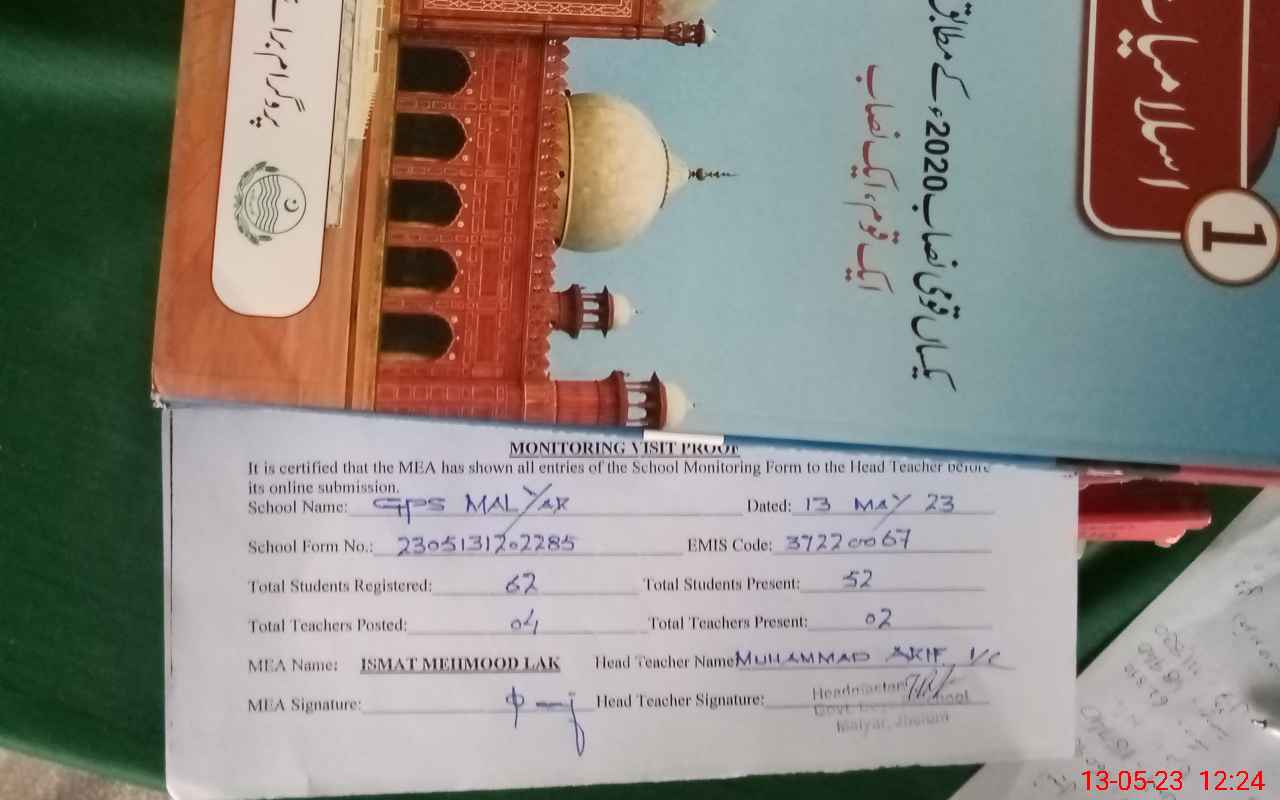 اسلامیات
1
یکساں قومی نصاب 2020ء کے مطابق
ایک قوم، ایک نصاب
MONITORING VISIT PROOF
It is certified that the MEA has shown all entries of the School Monitoring Form to the Head Teacher before
its online submission.
School Name: GPS MALYAR Dated: 13 MAY 23
School Form No.: 2305131202285 EMIS Code: 37220067
Total Students Registered: 62 Total Students Present: 52
Total Teachers Posted: 04 Total Teachers Present: 02
MEA Name: ISMAT MEHMOOD LAK Head Teacher Name MUHAMMAD ARIF I/C
MEA Signature: Head Teacher Signature:
Headmaster
Govt. School
Malyar, Jhelum
13-05-23 12:24